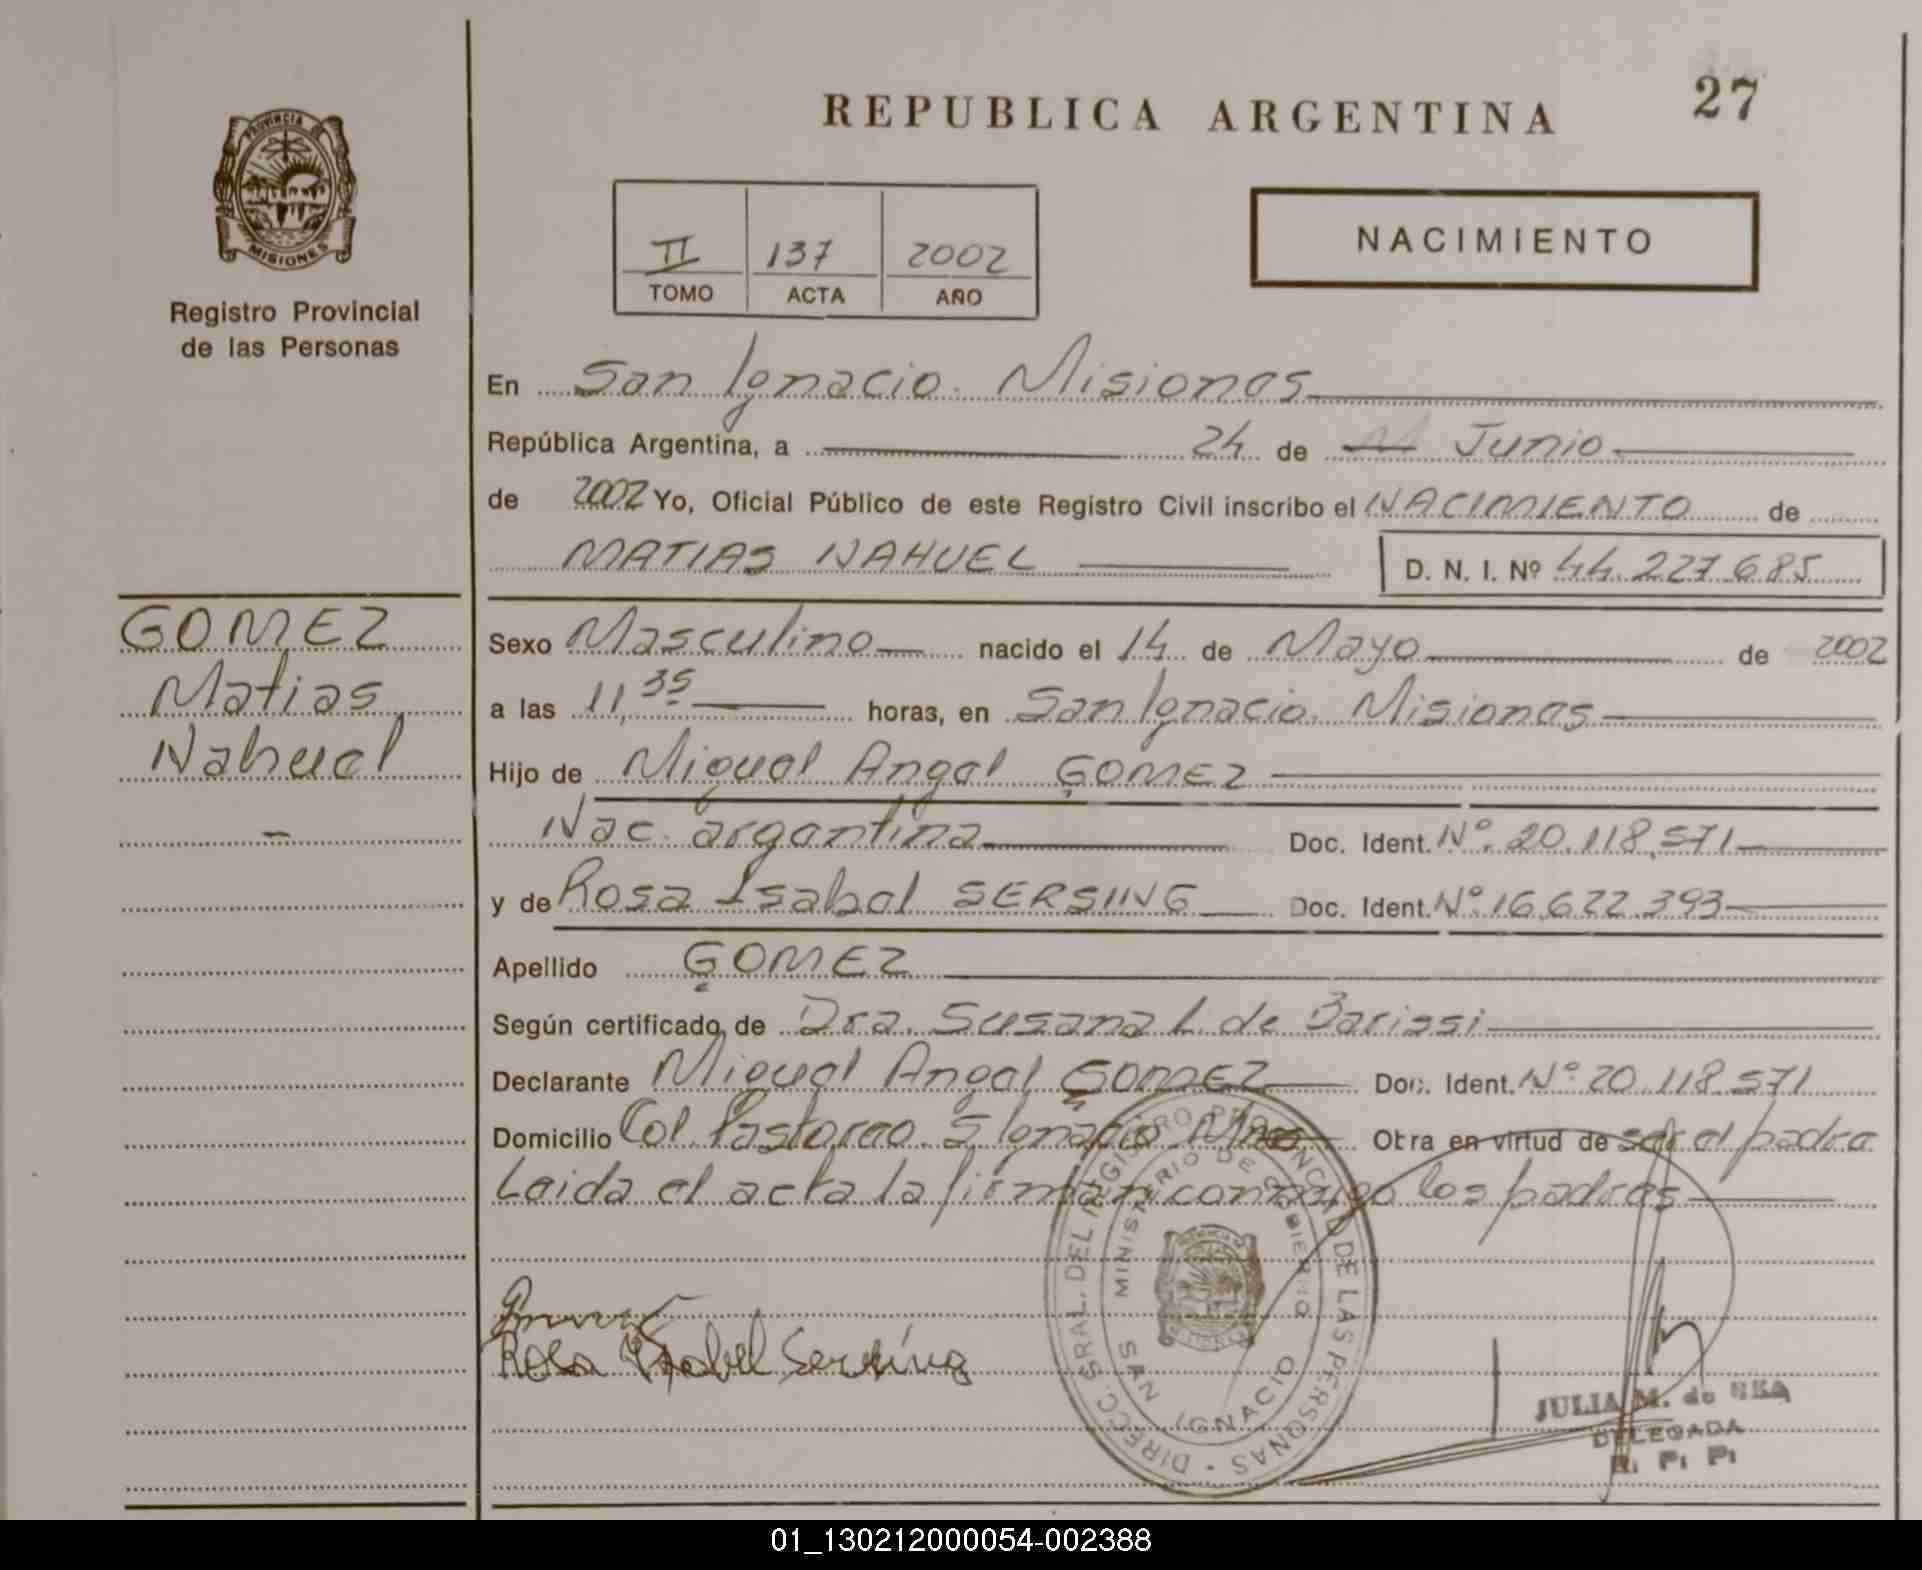 REPUBLICA ARGENTINA
27
PROVINCIA DE
MISIONES
Registro Provincial
de las Personas
II 137 2002
TOMO ACTA AÑO
NACIMIENTO
En San Ignacio. Misiones
República Argentina, a 24 de Junio
de 2002 Yo, Oficial Público de este Registro Civil inscribo el NACIMIENTO de
MATIAS NAHUEL D. N. I. Nº 44.227.685
GOMEZ
Matias
Nahuel
Sexo Masculino nacido el 14 de Mayo de 2002
a las 11,35 horas, en San Ignacio. Misiones
Hijo de Miguel Angel GOMEZ
Nac. argentina Doc. Ident. Nº. 20.118.571
y de Rosa Isabel SERSING Doc. Ident. Nº. 16.622.393
Apellido GOMEZ
Según certificado de Dra. Susana L. de Barissi
Declarante Miguel Angel GOMEZ Doc. Ident. Nº. 20.118.571
Domicilio Col. Pastoreo. S Ignacio Mnes Otra en virtud de ser el padre
Leida el acta la firman conmigo los padres
Rosa Isabel Sersing
DIRECC. GRAL. DEL REGISTRO PROVINCIAL DE LAS PERSONAS
MINISTERIO DE GOBIERNO
SAN IGNACIO
JULIA M. de
DELEGADA
R. P. P.
01_130212000054-002388